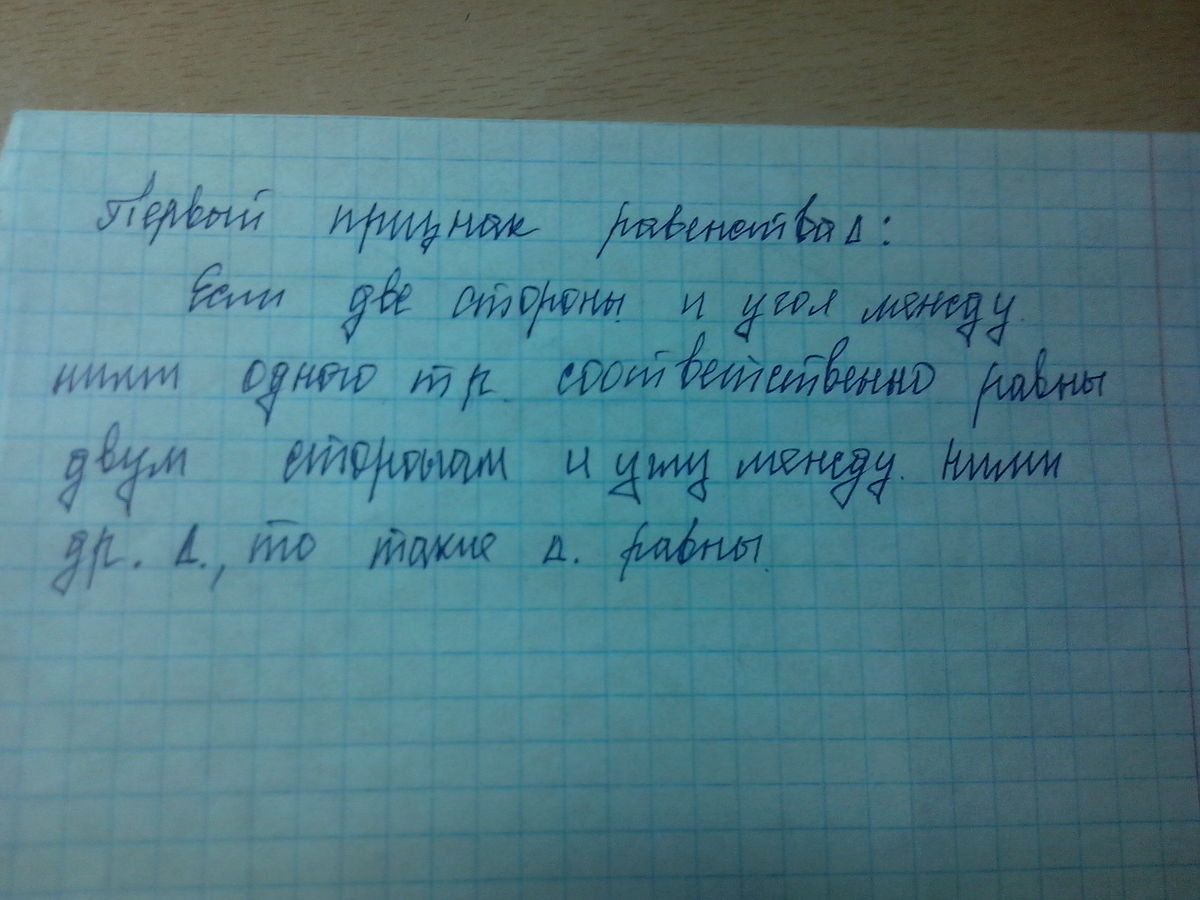 Первый признак равенства Δ:
Если две стороны и угол между
ними одного тр. соответственно равны
двум сторонам и углу между ними
др. Δ., то такие Δ. равны.